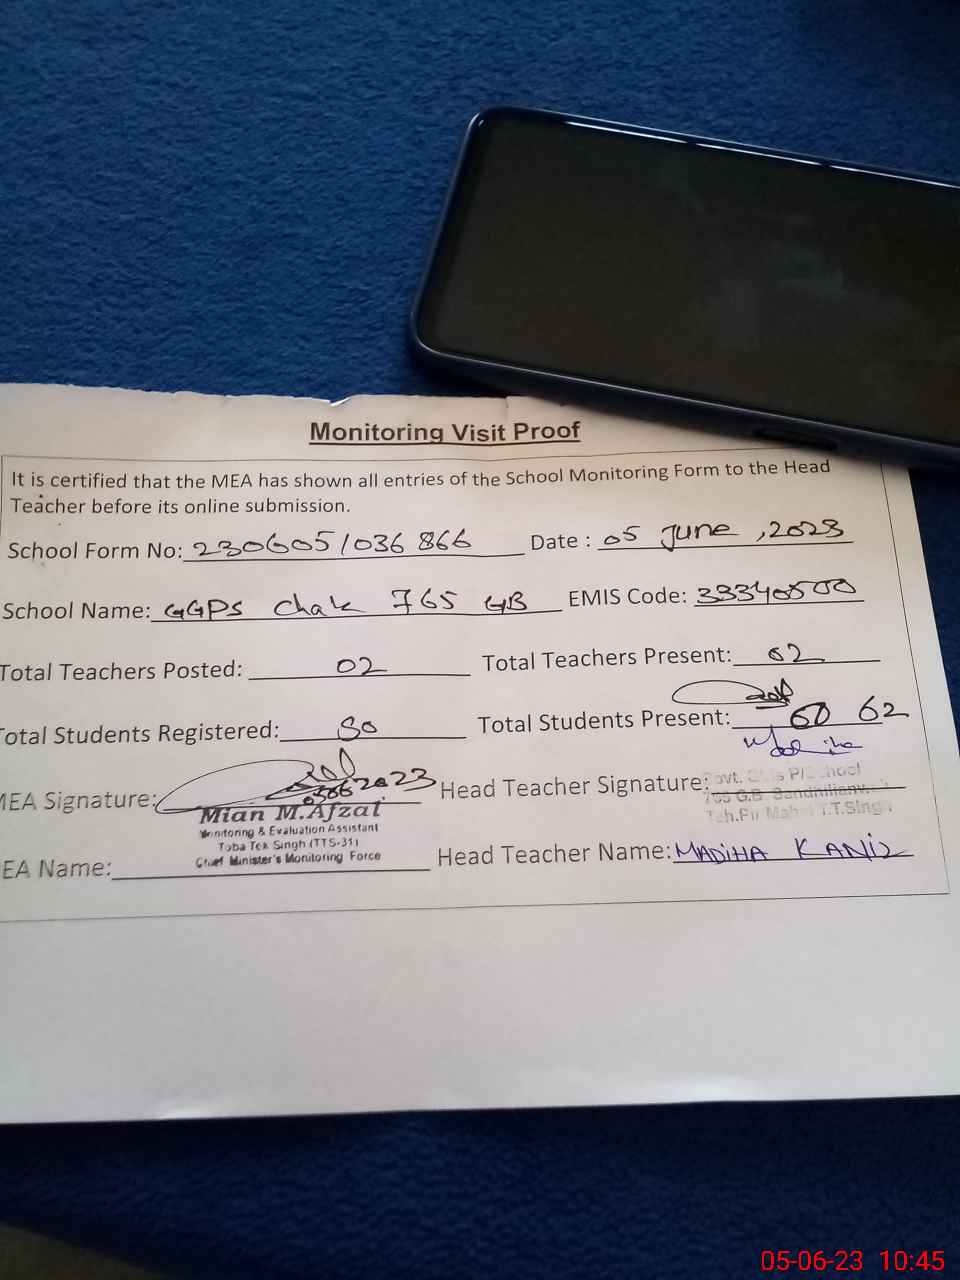 Monitoring Visit Proof
It is certified that the MEA has shown all entries of the School Monitoring Form to the Head
Teacher before its online submission.
School Form No: 230605/036866 Date : 05 June, 2023
School Name: GGPS Chak 765 GB EMIS Code: 33340500
Total Teachers Posted: 02 Total Teachers Present: 02
Total Students Registered: 80 Total Students Present: 60 62
Madiha
MEA Signature: 05062023 Head Teacher Signature: Govt. P/School
Mian M.Afzal
Monitoring & Evaluation Assistant
Toba Tek Singh (TTS-31)
Chief Minister's Monitoring Force
765 G.B Sandhilianw
Teh.Pir Mah T.T.Singh
EA Name: Head Teacher Name: MADIHA KANIZ
05-06-23 10:45